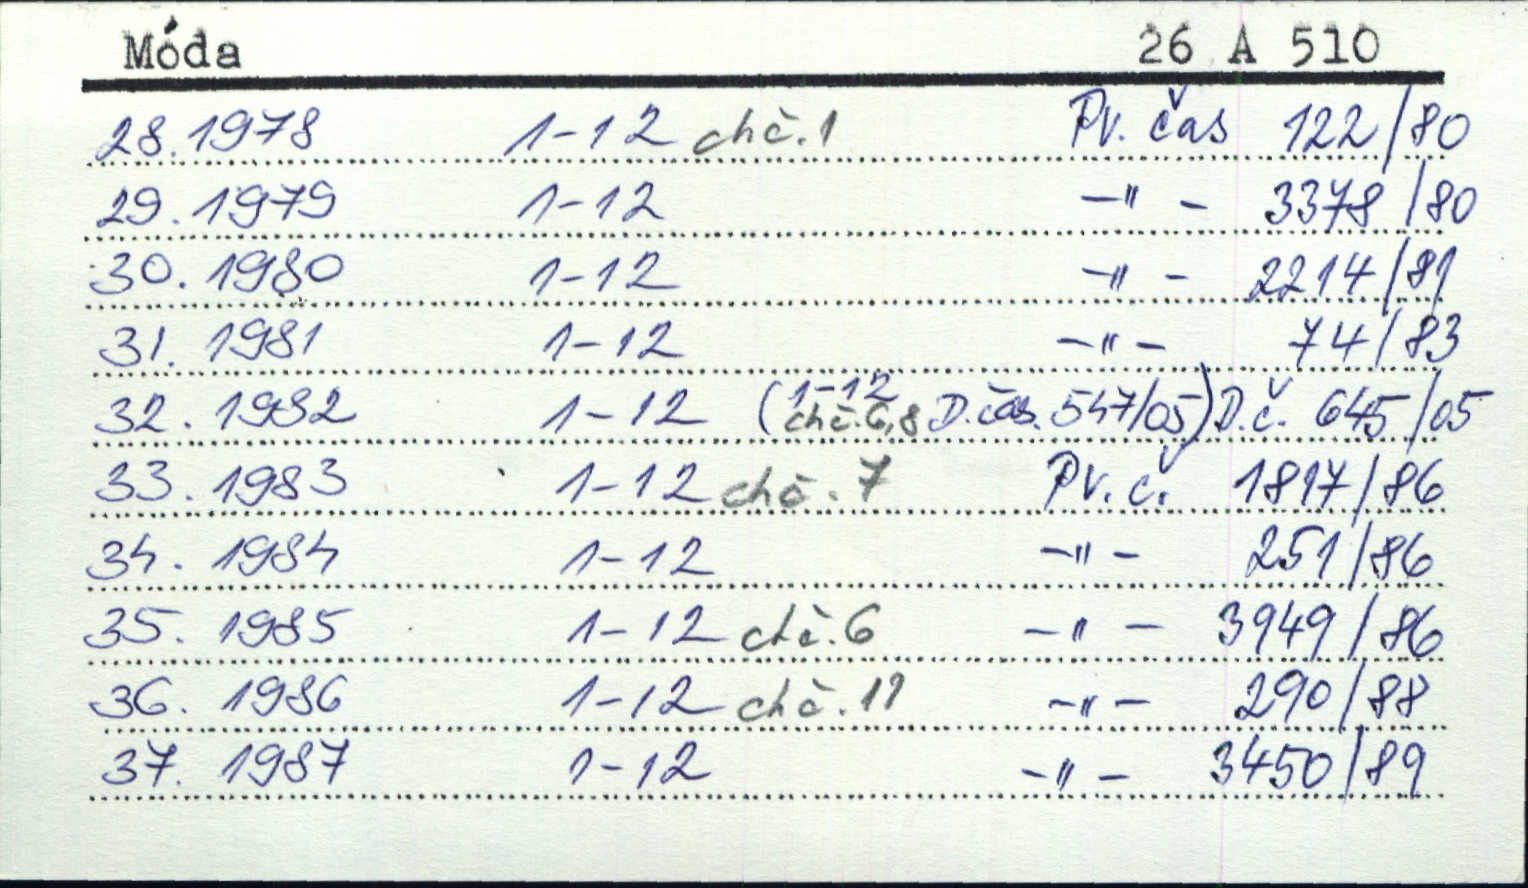 Móda 26 A 510
28. 1978 1-12 chč. 1 Pv. čas 122/80
29. 1979 1-12 -"- 3378/80
30. 1980 1-12 -"- 2214/81
31. 1981 1-12 -"- 74/83
32. 1982 1-12 (1-12 chč. 6,8 D. čas. 547/05) D.č. 645/05
33. 1983 1-12 chč. 7 Pv. č. 1817/86
34. 1984 1-12 -"- 251/86
35. 1985 1-12 chč. 6 -"- 3949/86
36. 1986 1-12 chč. 11 -"- 290/88
37. 1987 1-12 -"- 3450/89